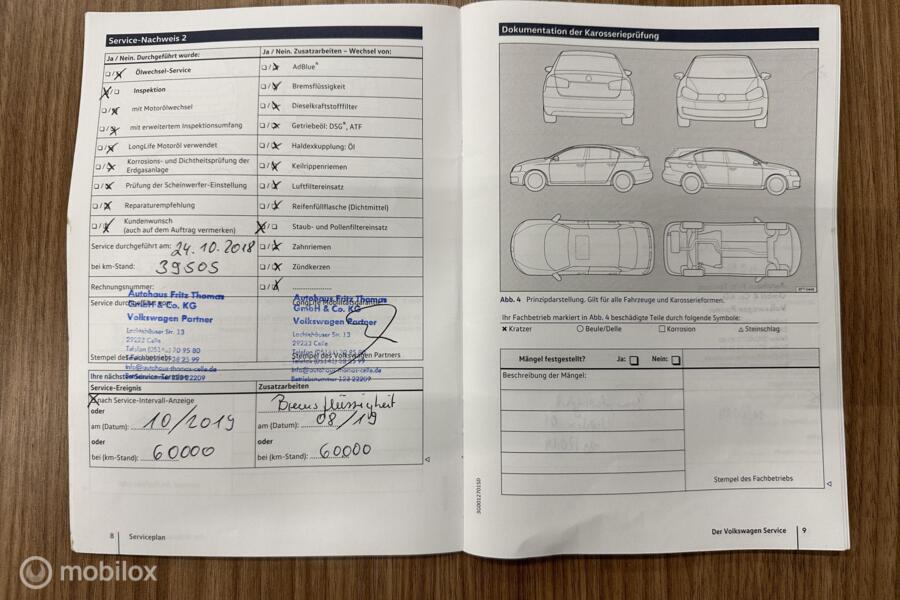 Service-Nachweis 2
Ja / Nein. Durchgeführt wurde:
Ölwechsel-Service
Inspektion
mit Motorölwechsel
mit erweitertem Inspektionsumfang
LongLife Motoröl verwendet
Korrosions- und Dichtheitsprüfung der
Erdgasanlage
Prüfung der Scheinwerfer-Einstellung
Reparaturempfehlung
Kundenwunsch
(auch auf dem Auftrag vermerken)
Service durchgeführt am: 24.10.2018
bei km-Stand: 39505
Rechnungsnummer:
Autohaus Fritz Thomas
GmbH & Co. KG
Volkswagen Partner
29223 Celle
Stempel des Fachbetriebs
Ja / Nein. Zusatzarbeiten – Wechsel von:
AdBlue®
Bremsflüssigkeit
Dieselkraftstofffilter
Getriebeöl: DSG®, ATF
Haldexkupplung: Öl
Keilrippenriemen
Luftfiltereinsatz
Reifenfüllflasche (Dichtmittel)
Staub- und Pollenfiltereinsatz
Zahnriemen
Zündkerzen
Autohaus Fritz Thomas
GmbH & Co. KG
Volkswagen Partner
Stempel des Volkswagen Partners
info@autohaus-thomas-celle.de
Service-Ereignis
nach Service-Intervall-Anzeige
oder
am (Datum): 10/2019
oder
bei (km-Stand): 60000
Zusatzarbeiten
Bremsflüssigkeit
am (Datum): 08/19
oder
bei (km-Stand): 60000
8 Serviceplan
Dokumentation der Karosserieprüfung
Abb. 4 Prinzipdarstellung. Gilt für alle Fahrzeuge und Karosserieformen.
Ihr Fachbetrieb markiert in Abb. 4 beschädigte Teile durch folgende Symbole:
Kratzer Beule/Delle Korrosion Steinschlag
Mängel festgestellt? Ja: Nein:
Beschreibung der Mängel:
Stempel des Fachbetriebs
Der Volkswagen Service 9
mobilox